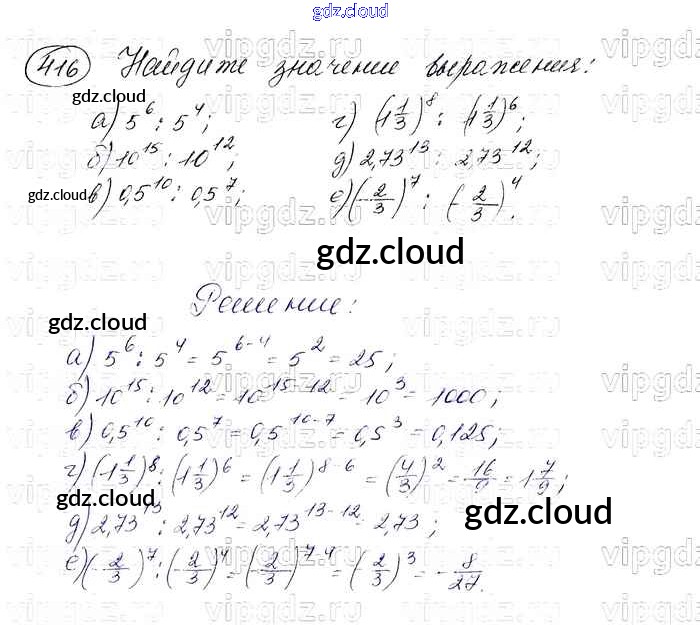 gdz.cloud
416 Найдите значение выражения:
gdz.cloud
а) 5⁶ : 5⁴; г) (1 1/3)⁸ : (1 1/3)⁶;
б) 10¹⁵ : 10¹²; д) 2,73¹³ : 2,73¹²;
gdz.cloud в) 0,5¹⁰ : 0,5⁷; е) (-2/3)⁷ : (-2/3)⁴.
gdz.cloud
Решение:
gdz.cloud
а) 5⁶ : 5⁴ = 5⁶⁻⁴ = 5² = 25;
б) 10¹⁵ : 10¹² = 10¹⁵⁻¹² = 10³ = 1000;
в) 0,5¹⁰ : 0,5⁷ = 0,5¹⁰⁻⁷ = 0,5³ = 0,125;
г) (1 1/3)⁸ : (1 1/3)⁶ = (1 1/3)⁸⁻⁶ = (4/3)² = 16/9 = 1 7/9;
gdz.cloud
д) 2,73¹³ : 2,73¹² = 2,73¹³⁻¹² = 2,73;
gdz.cloud
е) (-2/3)⁷ : (-2/3)⁴ = (-2/3)⁷⁻⁴ = (-2/3)³ = -8/27.